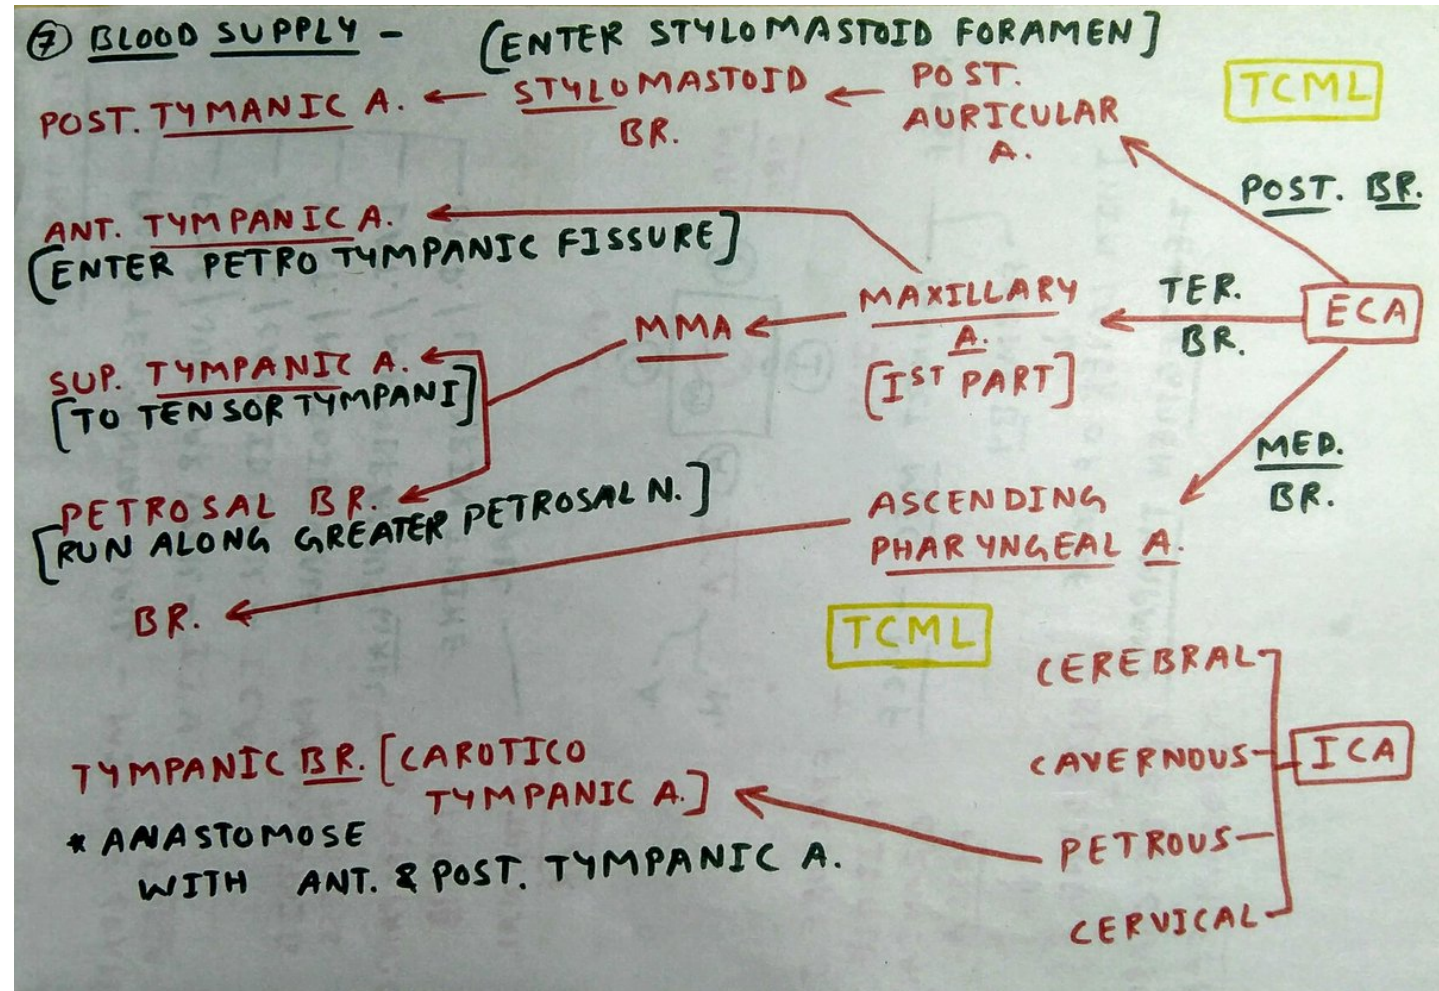 ⑦ BLOOD SUPPLY -
[ENTER STYLOMASTOID FORAMEN]
POST. TYMANIC A.
STYLOMASTOID
BR.
POST.
AURICULAR
A.
TCML
POST. BR.
ANT. TYMPANIC A.
[ENTER PETRO TYMPANIC FISSURE]
MAXILLARY
A.
[IST PART]
TER.
BR.
ECA
MMA
SUP. TYMPANIC A.
[TO TENSOR TYMPANI]
MED.
BR.
PETROSAL BR.
[RUN ALONG GREATER PETROSAL N.]
ASCENDING
PHARYNGEAL A.
BR.
TCML
CEREBRAL
CAVERNOUS
ICA
PETROUS
CERVICAL
TYMPANIC BR. [CAROTICO
TYMPANIC A.]
* ANASTOMOSE
WITH ANT. & POST. TYMPANIC A.